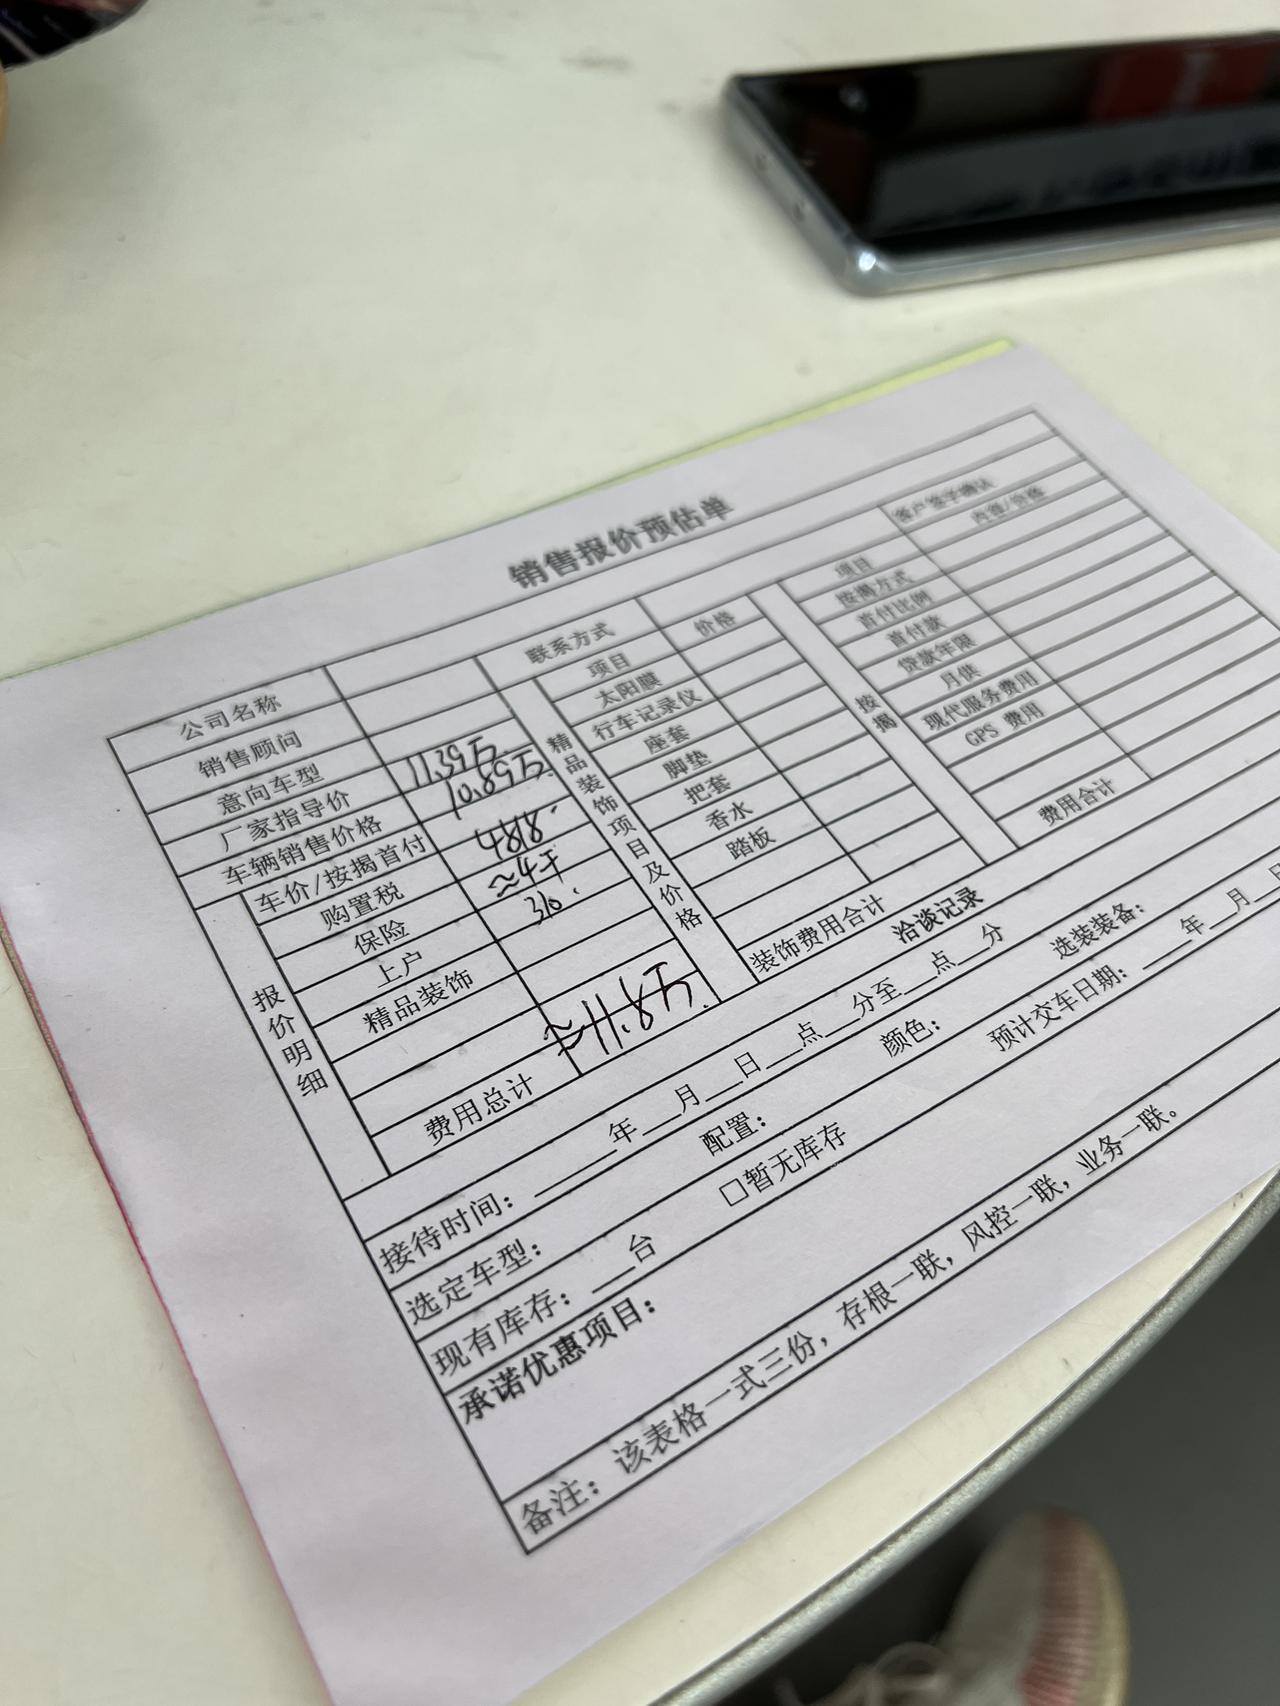 销售报价预估单
公司名称
联系方式
客户签字确认
销售顾问
项目
价格
项目
内容/价格
意向车型
太阳膜
按揭方式
厂家指导价
11.39万
行车记录仪
首付比例
车辆销售价格
10.89万
座套
首付款
车价/按揭首付
脚垫
贷款年限
购置税
4818
把套
月供
保险
≈4千
香水
现代服务费用
上户
310
踏板
GPS 费用
精品装饰
报价明细
精品装饰项目及价格
按揭
费用总计
≈11.8万
装饰费用合计
费用合计
洽谈记录
接待时间：____年__月__日__点__分至__点__分
选定车型：
配置：
颜色：
选装装备：
现有库存：__台
□暂无库存
预计交车日期：____年__月__日
承诺优惠项目：
备注：该表格一式三份，存根一联，风控一联，业务一联。